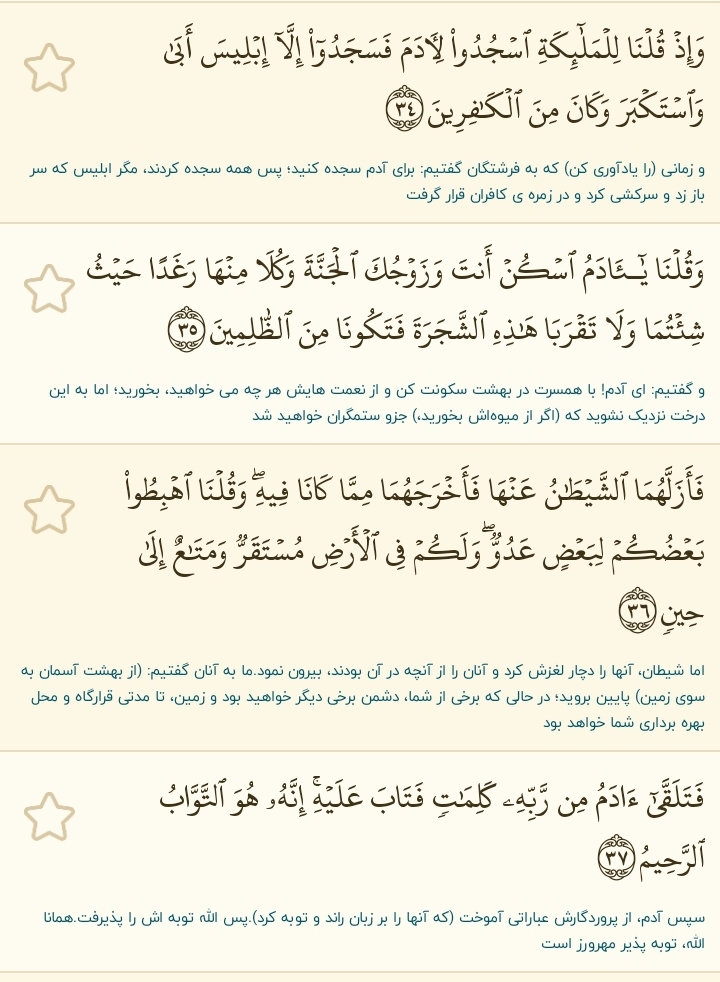 وَإِذۡ قُلۡنَا لِلۡمَلَٰٓئِكَةِ ٱسۡجُدُواْ لِأٓدَمَ فَسَجَدُوٓاْ إِلَّآ إِبۡلِيسَ أَبَىٰ
وَٱسۡتَكۡبَرَ وَكَانَ مِنَ ٱلۡكَٰفِرِينَ ٣٤
و زمانی (را یادآوری کن) که به فرشتگان گفتیم: برای آدم سجده کنید؛ پس همه سجده کردند، مگر ابلیس که سر
باز زد و سرکشی کرد و در زمره ی کافران قرار گرفت
وَقُلۡنَا يَٰٓـَٔادَمُ ٱسۡكُنۡ أَنتَ وَزَوۡجُكَ ٱلۡجَنَّةَ وَكُلَا مِنۡهَا رَغَدًا حَيۡثُ
شِئۡتُمَا وَلَا تَقۡرَبَا هَٰذِهِ ٱلشَّجَرَةَ فَتَكُونَا مِنَ ٱلظَّٰلِمِينَ ٣٥
و گفتیم: ای آدم! با همسرت در بهشت سکونت کن و از نعمت هایش هر چه می خواهید، بخورید؛ اما به این
درخت نزدیک نشوید که (اگر از میوه‌اش بخورید،) جزو ستمگران خواهید شد
فَأَزَلَّهُمَا ٱلشَّيۡطَٰنُ عَنۡهَا فَأَخۡرَجَهُمَا مِمَّا كَانَا فِيهِۖ وَقُلۡنَا ٱهۡبِطُواْ
بَعۡضُكُمۡ لِبَعۡضٍ عَدُوّٞۖ وَلَكُمۡ فِي ٱلۡأَرۡضِ مُسۡتَقَرّٞ وَمَتَٰعٌ إِلَىٰ
حِينٖ ٣٦
اما شیطان، آنها را دچار لغزش کرد و آنان را از آنچه در آن بودند، بیرون نمود.ما به آنان گفتیم: (از بهشت آسمان به
سوی زمین) پایین بروید؛ در حالی که برخی از شما، دشمن برخی دیگر خواهید بود و زمین، تا مدتی قرارگاه و محل
بهره برداری شما خواهد بود
فَتَلَقَّىٰٓ ءَادَمُ مِن رَّبِّهِۦ كَلِمَٰتٖ فَتَابَ عَلَيۡهِۚ إِنَّهُۥ هُوَ ٱلتَّوَّابُ
ٱلرَّحِيمُ ٣٧
سپس آدم، از پروردگارش عباراتی آموخت (که آنها را بر زبان راند و توبه کرد).پس الله توبه اش را پذیرفت.همانا
الله، توبه پذیر مهرورز است